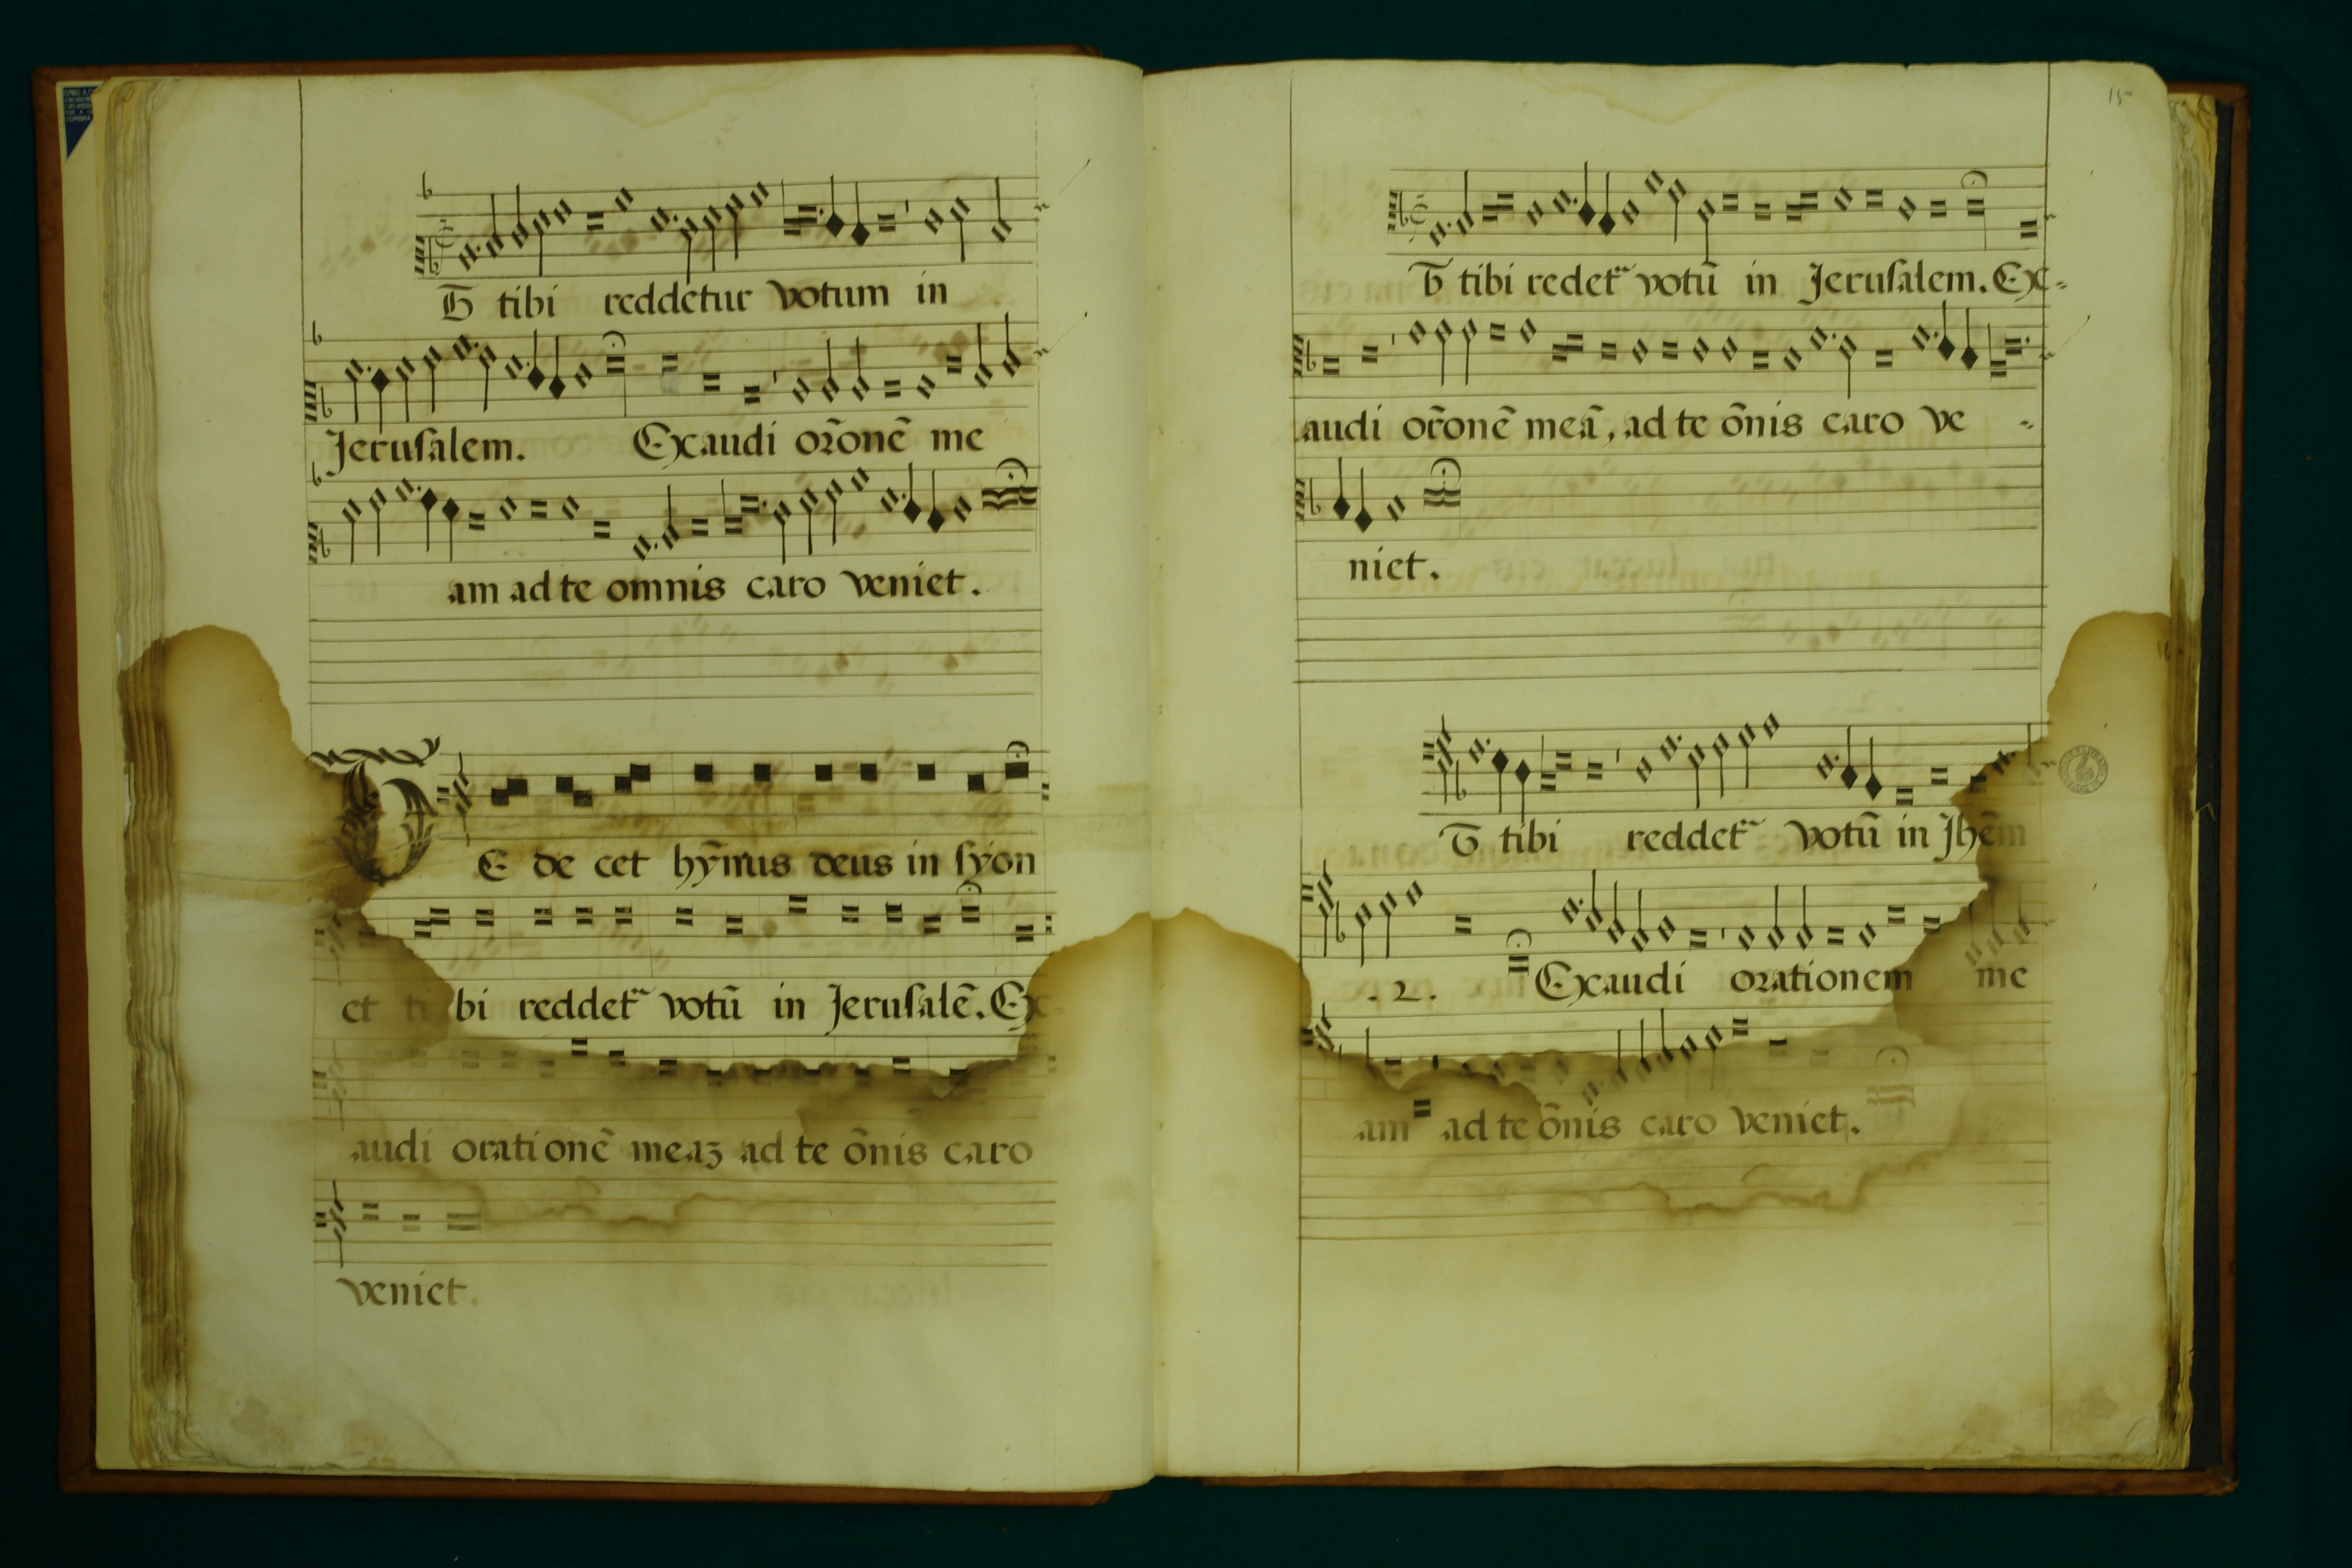 Et tibi reddetur votum in
Jeruſalem. Exaudi or̃onē me
am ad te omnis caro veniet.
TE de cet hỹnus deus in ſyon
et ti bi reddet᷑ votū in Jeruſalē. Ex
audi orationē meaꝫ ad te õnis caro
veniet.
15
Et tibi redet᷑ votū in Jeruſalem. Ex-
audi or̃onē meã, ad te õnis caro ve -
niet.
Et tibi reddet᷑ votū in Jhẽm
.2. Exaudi orationem me
am ad te õnis caro veniet.